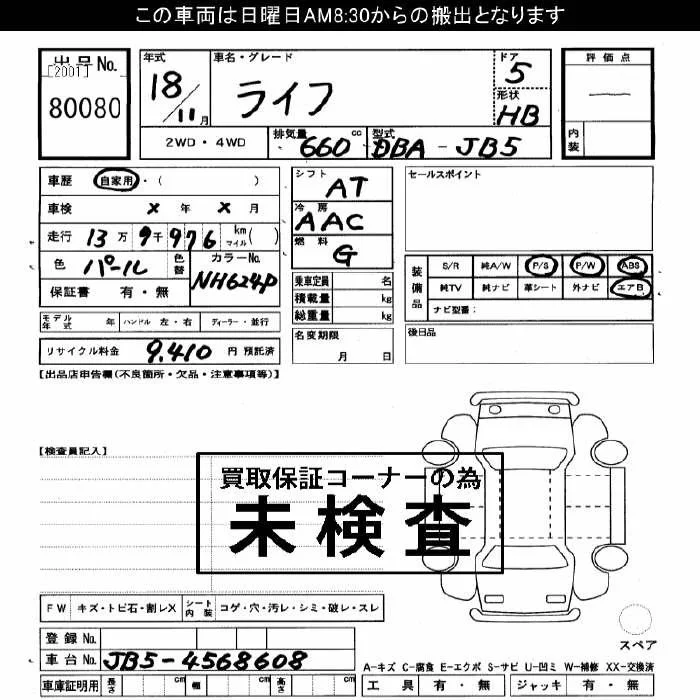 この車両は日曜日AM8:30からの搬出となります
出品No.
[2001]
80080
年式 18/11月
車名・グレード ライフ
ドア 5
形状 HB
評価点 —
内装
2WD・4WD
排気量 660 cc
型式 DBA - JB5
車歴 自家用・( )
車検 × 年 × 月
走行 13万9千976 km マイル( )
色 パール 色替 カラーNo. NH624P
保証書 有・無
シフト AT
冷房 AAC
燃料 G
乗車定員 名
積載量 kg
総重量 kg
セールスポイント
装備品 S/R 純A/W P/S P/W ABS
純TV 純ナビ 革シート 外ナビ エアB
ナビ型番:
モデル年式 年 ハンドル 左・右 ディーラー・並行
名変期限 月 日
後日品
リサイクル料金 9,410 円 預託済
【出品店申告欄(不良箇所・欠品・注意事項等)】
【検査員記入】
買取保証コーナーの為
未検査
FW キズ・トビ石・割レX シート内装 コゲ・穴・汚レ・シミ・破レ・スレ
スペア
登録No.
車台No. JB5-4568608
A-キズ C-腐食 E-エクボ S-サビ U-凹ミ W-補修 XX-交換済
車庫証明用 長さ cm 幅 cm 高さ cm
工具 有・無 ジャッキ 有・無